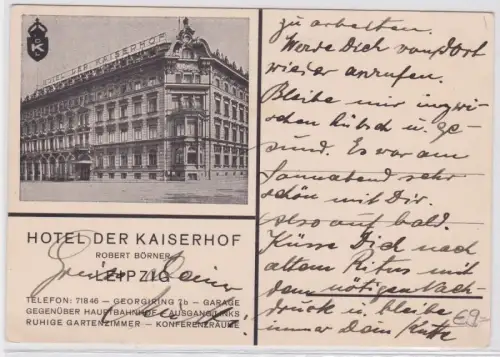 HOTEL DER KAISERHOF
K
HOTEL DER KAISERHOF
ROBERT BÖRNER
LEIPZIG
TELEFON: 71846 — GEORGIRING 7b — GARAGE
GEGENÜBER HAUPTBAHNHOF - AUSGANG LINKS
RUHIGE GARTENZIMMER — KONFERENZRÄUME
zu arbeiten.
Werde Dich von dort
wieder anrufen.
Bleibe mir inzwi-
schen hübsch u. ge-
sund. Es war am
Sonnabend sehr
schön mit Dir.
Also auf bald.
Küsse Dich nach
altem Ritus mit
dem nötigen Nach-
druck u. bleibe
immer Dein
€9.-